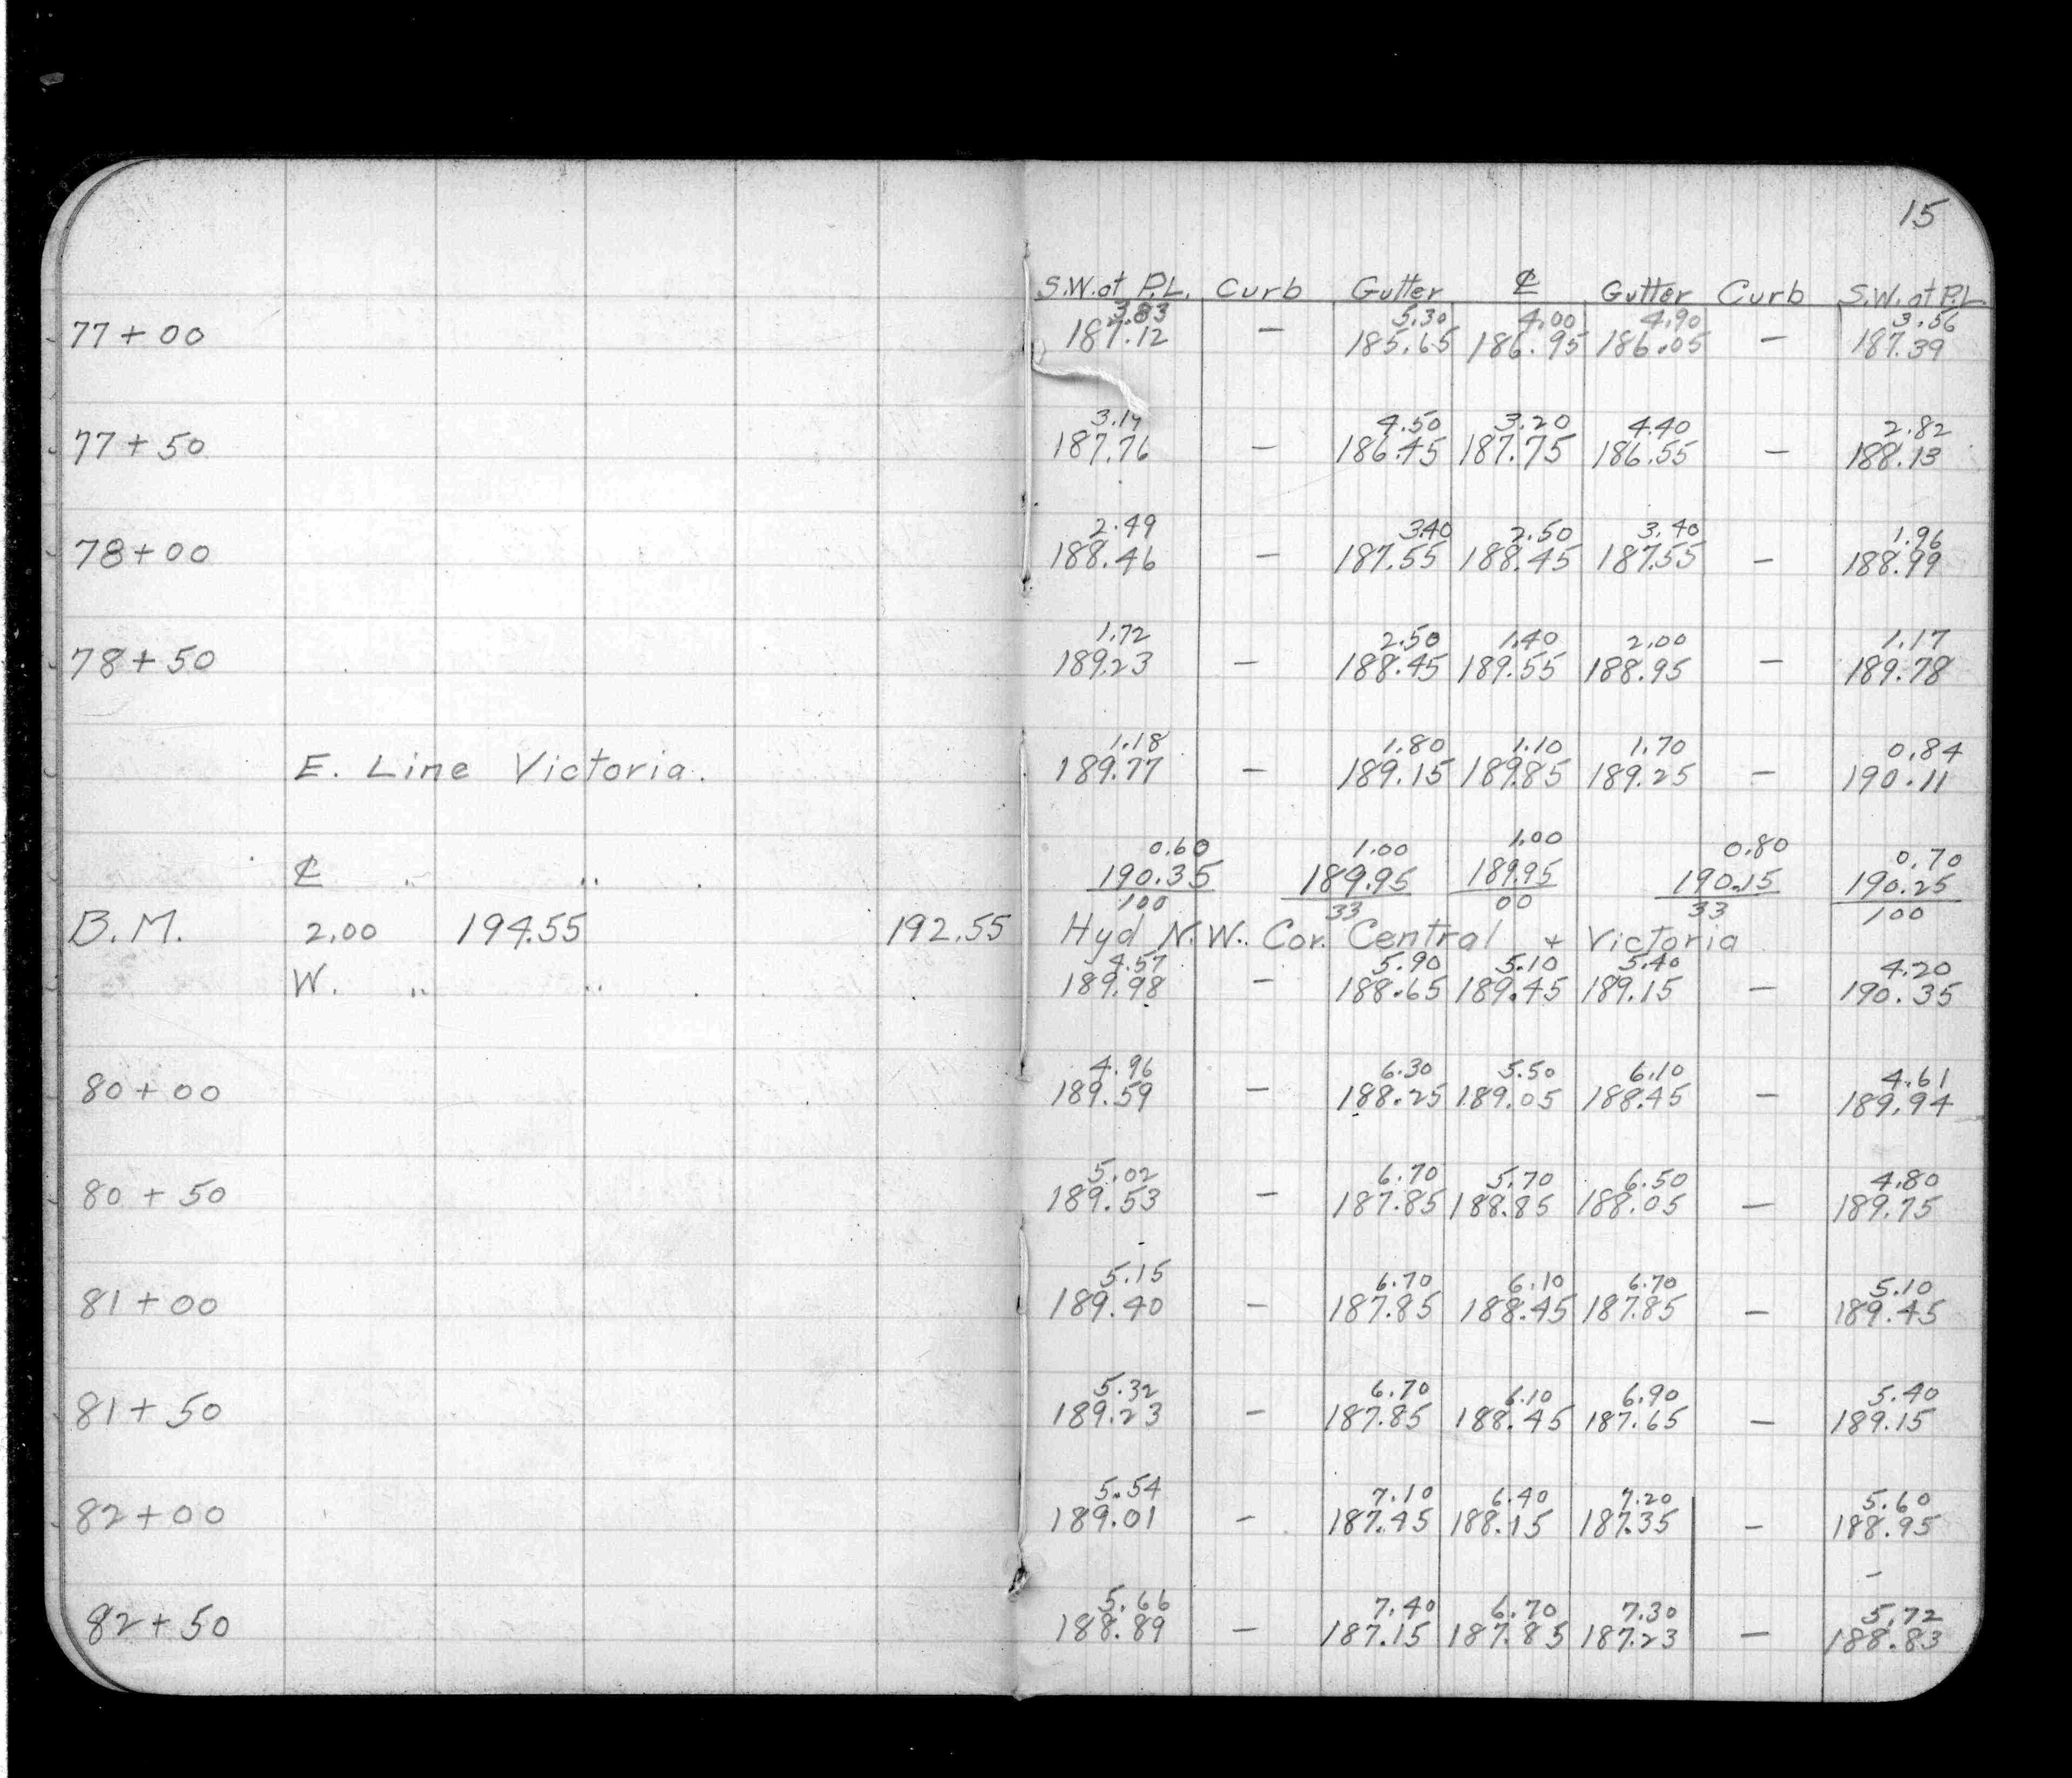 15
S.W. at P.L. Curb Gutter ℄ Gutter Curb S.W. at P.L.
3.83 5.30 4.00 4.90 3.56
77+00 187.12 — 185.65 186.95 186.05 — 187.39
3.19 4.50 3.20 4.40 2.82
77+50 187.76 — 186.45 187.75 186.55 — 188.13
2.49 3.40 2.50 3.40 1.96
78+00 188.46 — 187.55 188.45 187.55 — 188.99
1.72 2.50 1.40 2.00 1.17
78+50 189.23 — 188.45 189.55 188.95 — 189.78
1.18 1.80 1.10 1.70 0.84
E. Line Victoria. 189.77 — 189.15 189.85 189.25 — 190.11
0.60 1.00 1.00 0.80 0.70
℄ " " . 190.35 189.95 189.95 190.15 190.25
100 33 00 33 100
B.M. 2.00 194.55 192.55 Hyd N.W. Cor. Central + Victoria
4.57 5.90 5.10 5.40 4.20
W. " " . 189.98 — 188.65 189.45 189.15 — 190.35
4.96 6.30 5.50 6.10 4.61
80+00 189.59 — 188.25 189.05 188.45 — 189.94
5.02 6.70 5.70 6.50 4.80
80+50 189.53 — 187.85 188.85 188.05 — 189.75
5.15 6.70 6.10 6.70 5.10
81+00 189.40 — 187.85 188.45 187.85 — 189.45
5.32 6.70 6.10 6.90 5.40
81+50 189.23 — 187.85 188.45 187.65 — 189.15
5.54 7.10 6.40 7.20 5.60
82+00 189.01 — 187.45 188.15 187.35 — 188.95
5.66 7.40 6.70 7.30 5.72
82+50 188.89 — 187.15 187.85 187.23 — 188.83